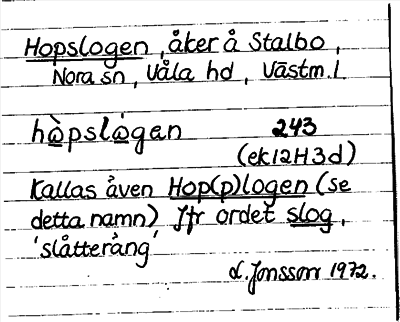 Hopslogen, åker å Stalbo,
Nora sn, Våla hd, Västm. l.
hòpslógan 243
(ek12H3d)
Kallas även Hop(p)logen (se
detta namn) Jfr ordet slog,
'slåtteräng'
L. Jonsson 1972.